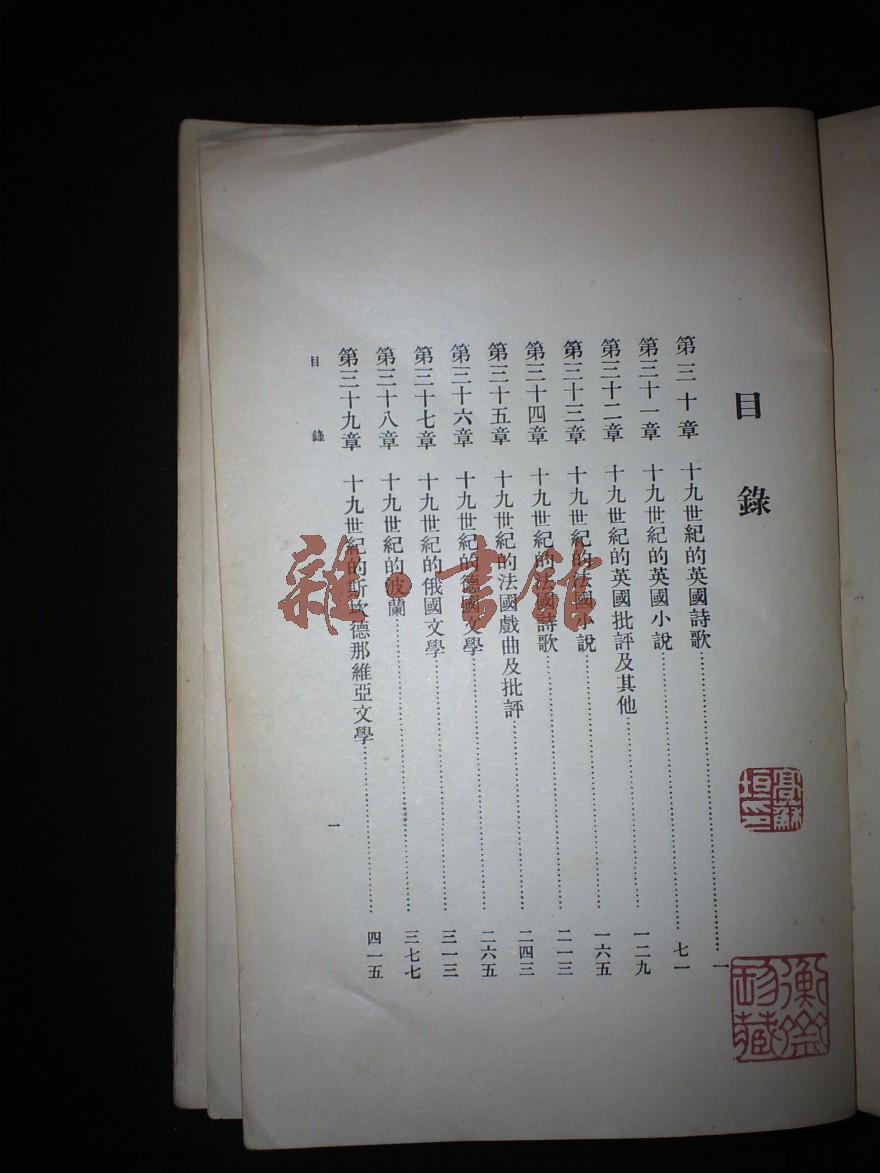 目錄
第三十章 十九世紀的英國詩歌……一
第三十一章 十九世紀的英國小說……七一
第三十二章 十九世紀的英國批評及其他……一二九
第三十三章 十九世紀的法國小說……一六五
第三十四章 十九世紀的法國詩歌……二一三
第三十五章 十九世紀的法國戲曲及批評……二四三
第三十六章 十九世紀的德國文學……二六五
第三十七章 十九世紀的俄國文學……三一三
第三十八章 十九世紀的波蘭……三七七
第三十九章 十九世紀的斯坎德那維亞文學……四一五
目錄
一
雜·書館
高蘇垣印